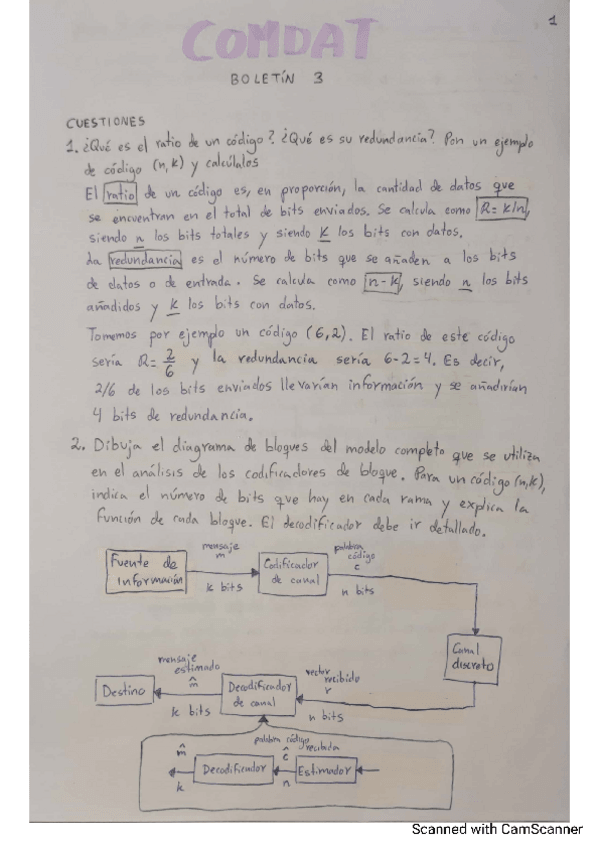 1
COMDAT
BOLETÍN 3
CUESTIONES
1. ¿Qué es el ratio de un código? ¿Qué es su redundancia? Pon un ejemplo
de código (n,k) y calcúlalos
El ratio de un código es, en proporción, la cantidad de datos que
se encuentran en el total de bits enviados. Se calcula como R=k/n,
siendo n los bits totales y siendo k los bits con datos.
La redundancia es el número de bits que se añaden a los bits
de datos o de entrada. Se calcula como n-k, siendo n los bits
añadidos y k los bits con datos.
Tomemos por ejemplo un código (6,2). El ratio de este código
sería R=2/6 y la redundancia sería 6-2=4. Es decir,
2/6 de los bits enviados llevarían información y se añadirían
4 bits de redundancia.
2. Dibuja el diagrama de bloques del modelo completo que se utiliza
en el análisis de los codificadores de bloque. Para un código (n,k),
indica el número de bits que hay en cada rama y explica la
función de cada bloque. El decodificador debe ir detallado.
Fuente de
información
mensaje
m
k bits
Codificador
de canal
palabra
código
c
n bits
Canal
discreto
vector
recibido
r
n bits
Decodificador
de canal
mensaje
estimado
m̂
k bits
Destino
m̂
k
Decodificador
palabra código
recibida
ĉ
n
Estimador
Scanned with CamScanner